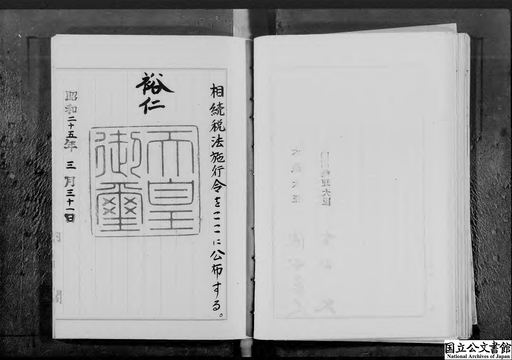 相続税法施行令をここに公布する。
裕仁
天皇
御璽
昭和二十五年三月三十一日
内閣総理大臣
大蔵大臣
国立公文書館
National Archives of Japan